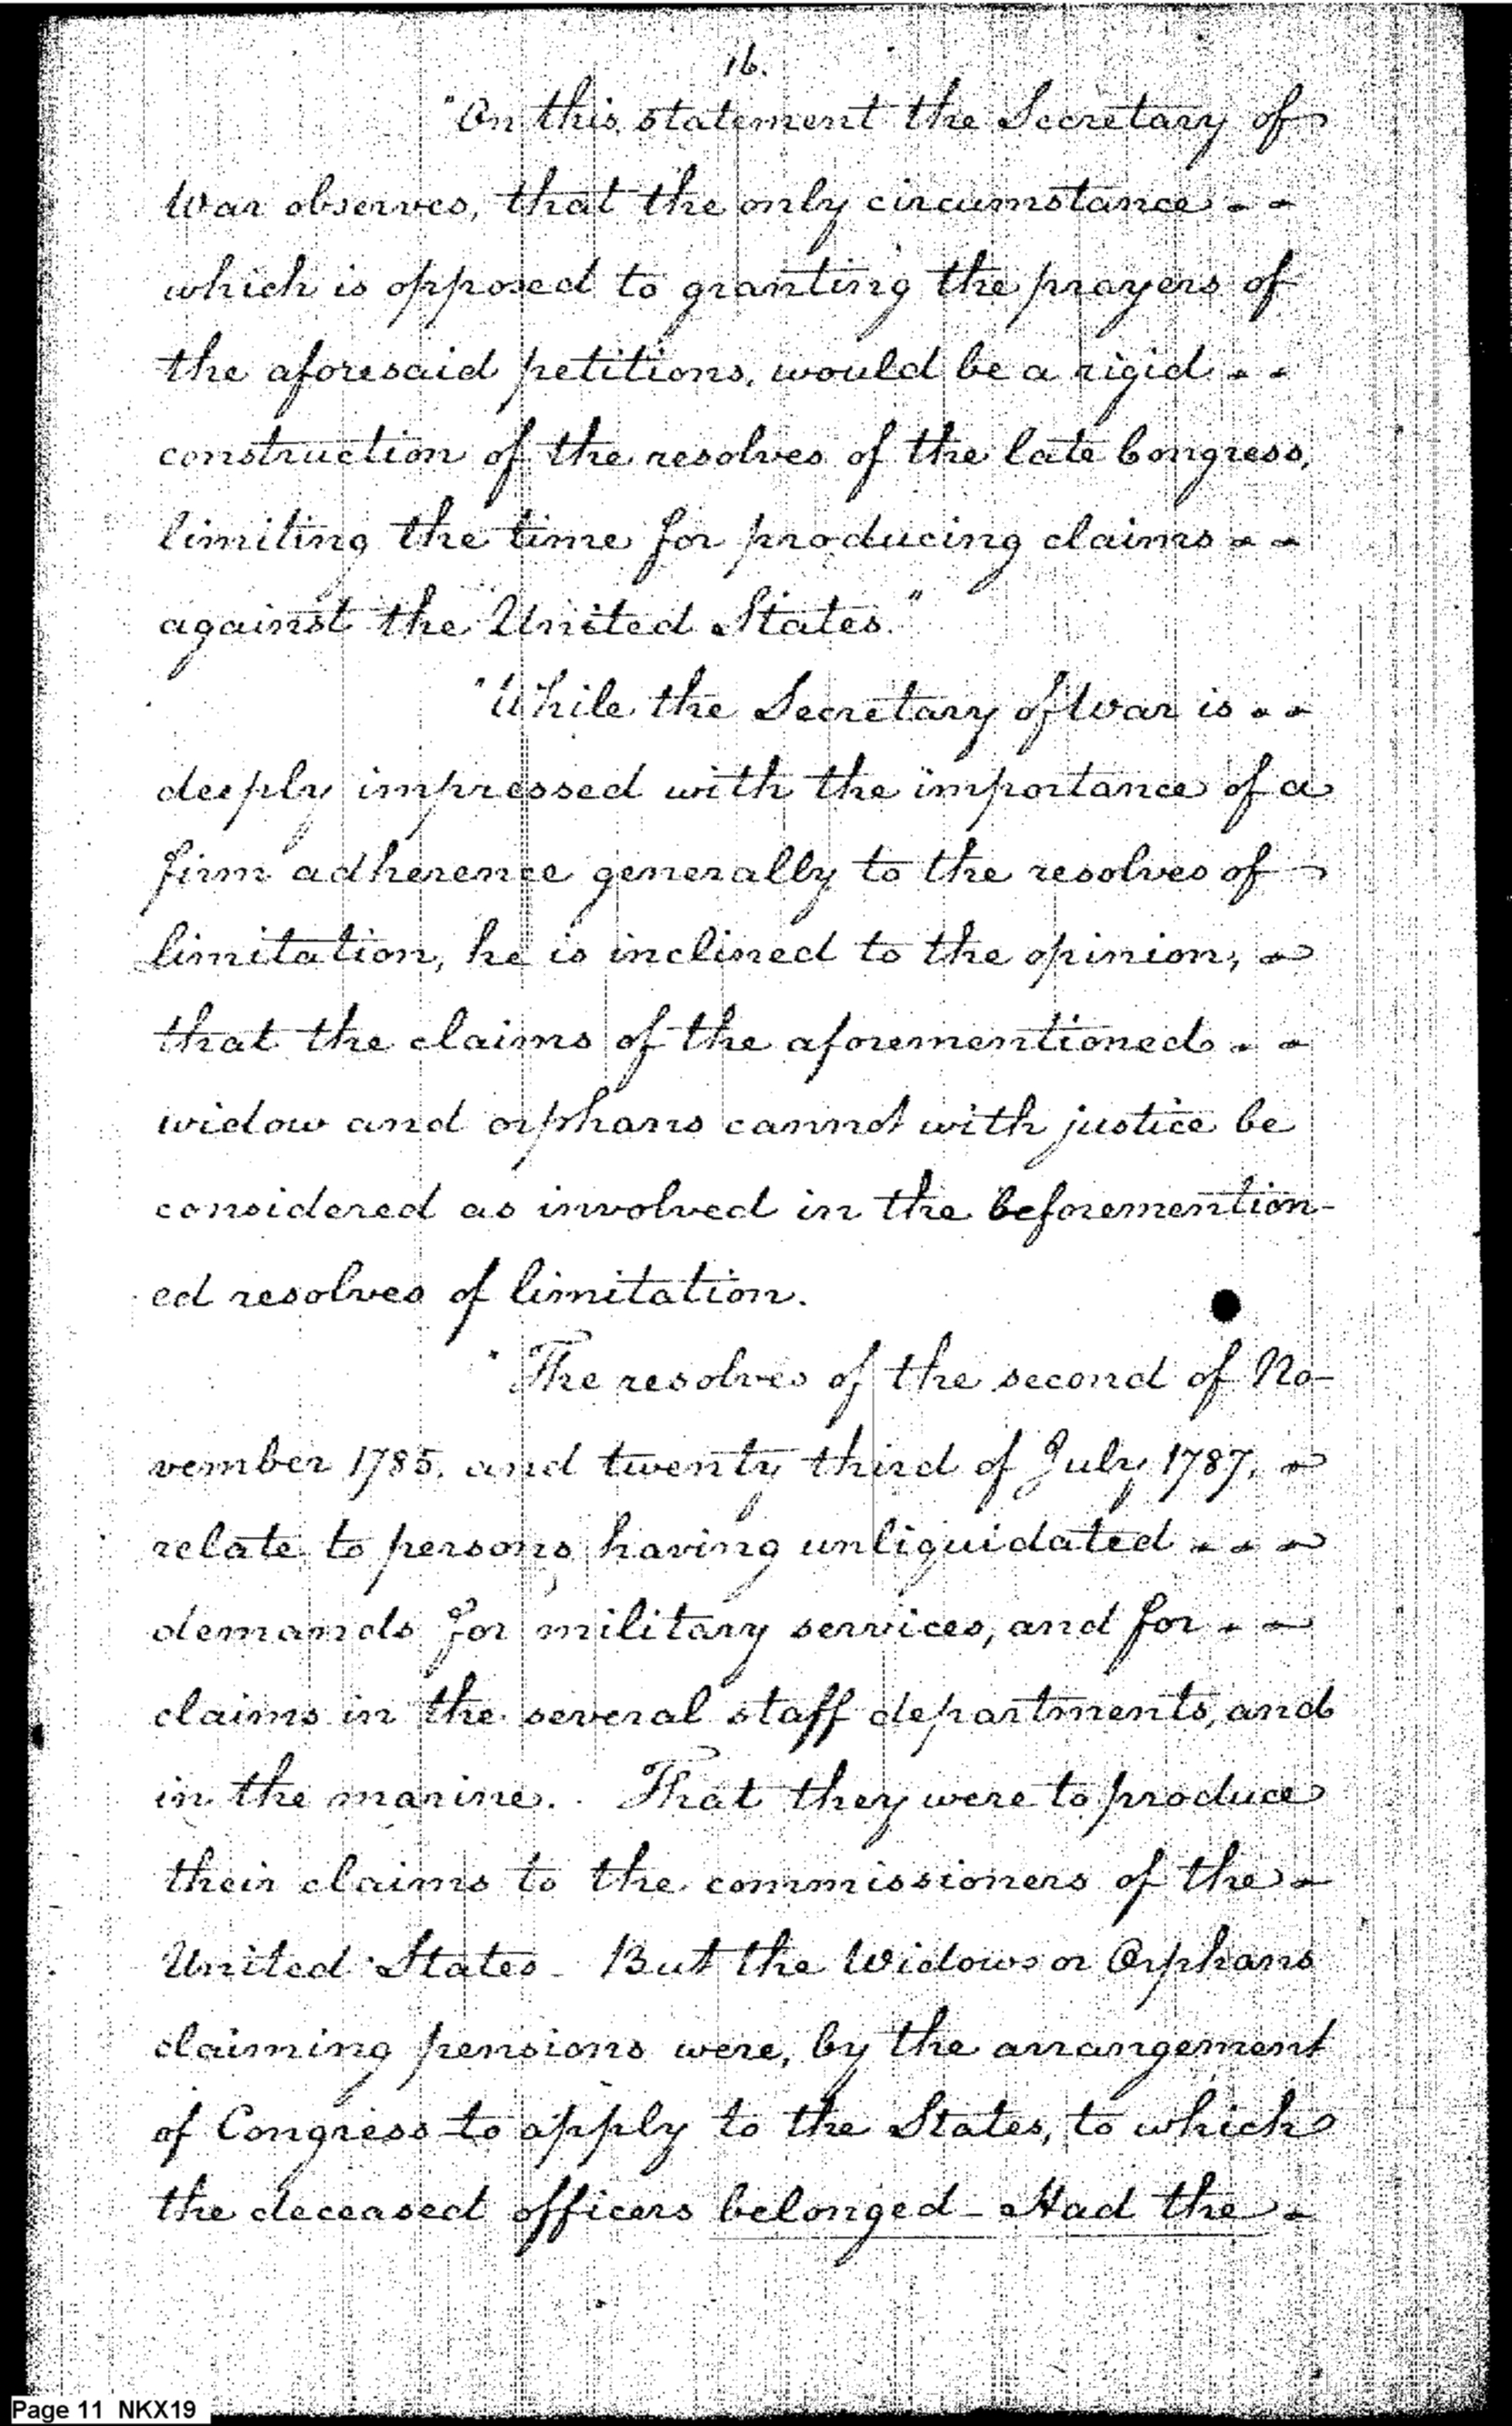 16.
"On this statement the Secretary of
War observes, that the only circumstance - -
which is opposed to granting the prayers of
the aforesaid petitions, would be a rigid - -
construction of the resolves of the late Congress,
limiting the time for producing claims - -
against the United States."
"While the Secretary of War is - -
deeply impressed with the importance of a
firm adherence generally to the resolves of -
limitation, he is inclined to the opinion, -
that the claims of the aforementioned - -
widow and orphans cannot with justice be
considered as involved in the beforemention-
ed resolves of limitation.
"The resolves of the second of No-
vember 1785. and twenty third of July 1787, -
relate to persons having unliquidated - - -
demands for military services, and for - -
claims in the several staff departments, and
in the marine. That they were to produce
their claims to the commissioners of the -
United States - But the Widows or Orphans
claiming pensions were, by the arrangement
of Congress to apply to the States, to which
the deceased officers belonged - Had the -
Page 11 NKX19